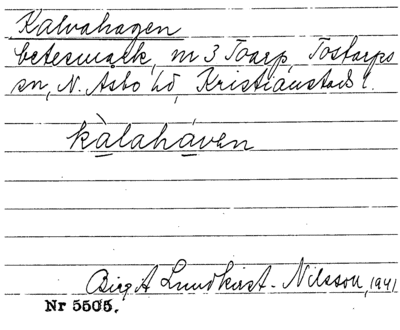 Kalvahagen
betesmark, m 3 Toarp, Tostarps
sn, N. Åsbo hd, Kristianstads l.
kàlaháven
Birgit Lundkvist-Nilsson, 1941
Nr 5505.